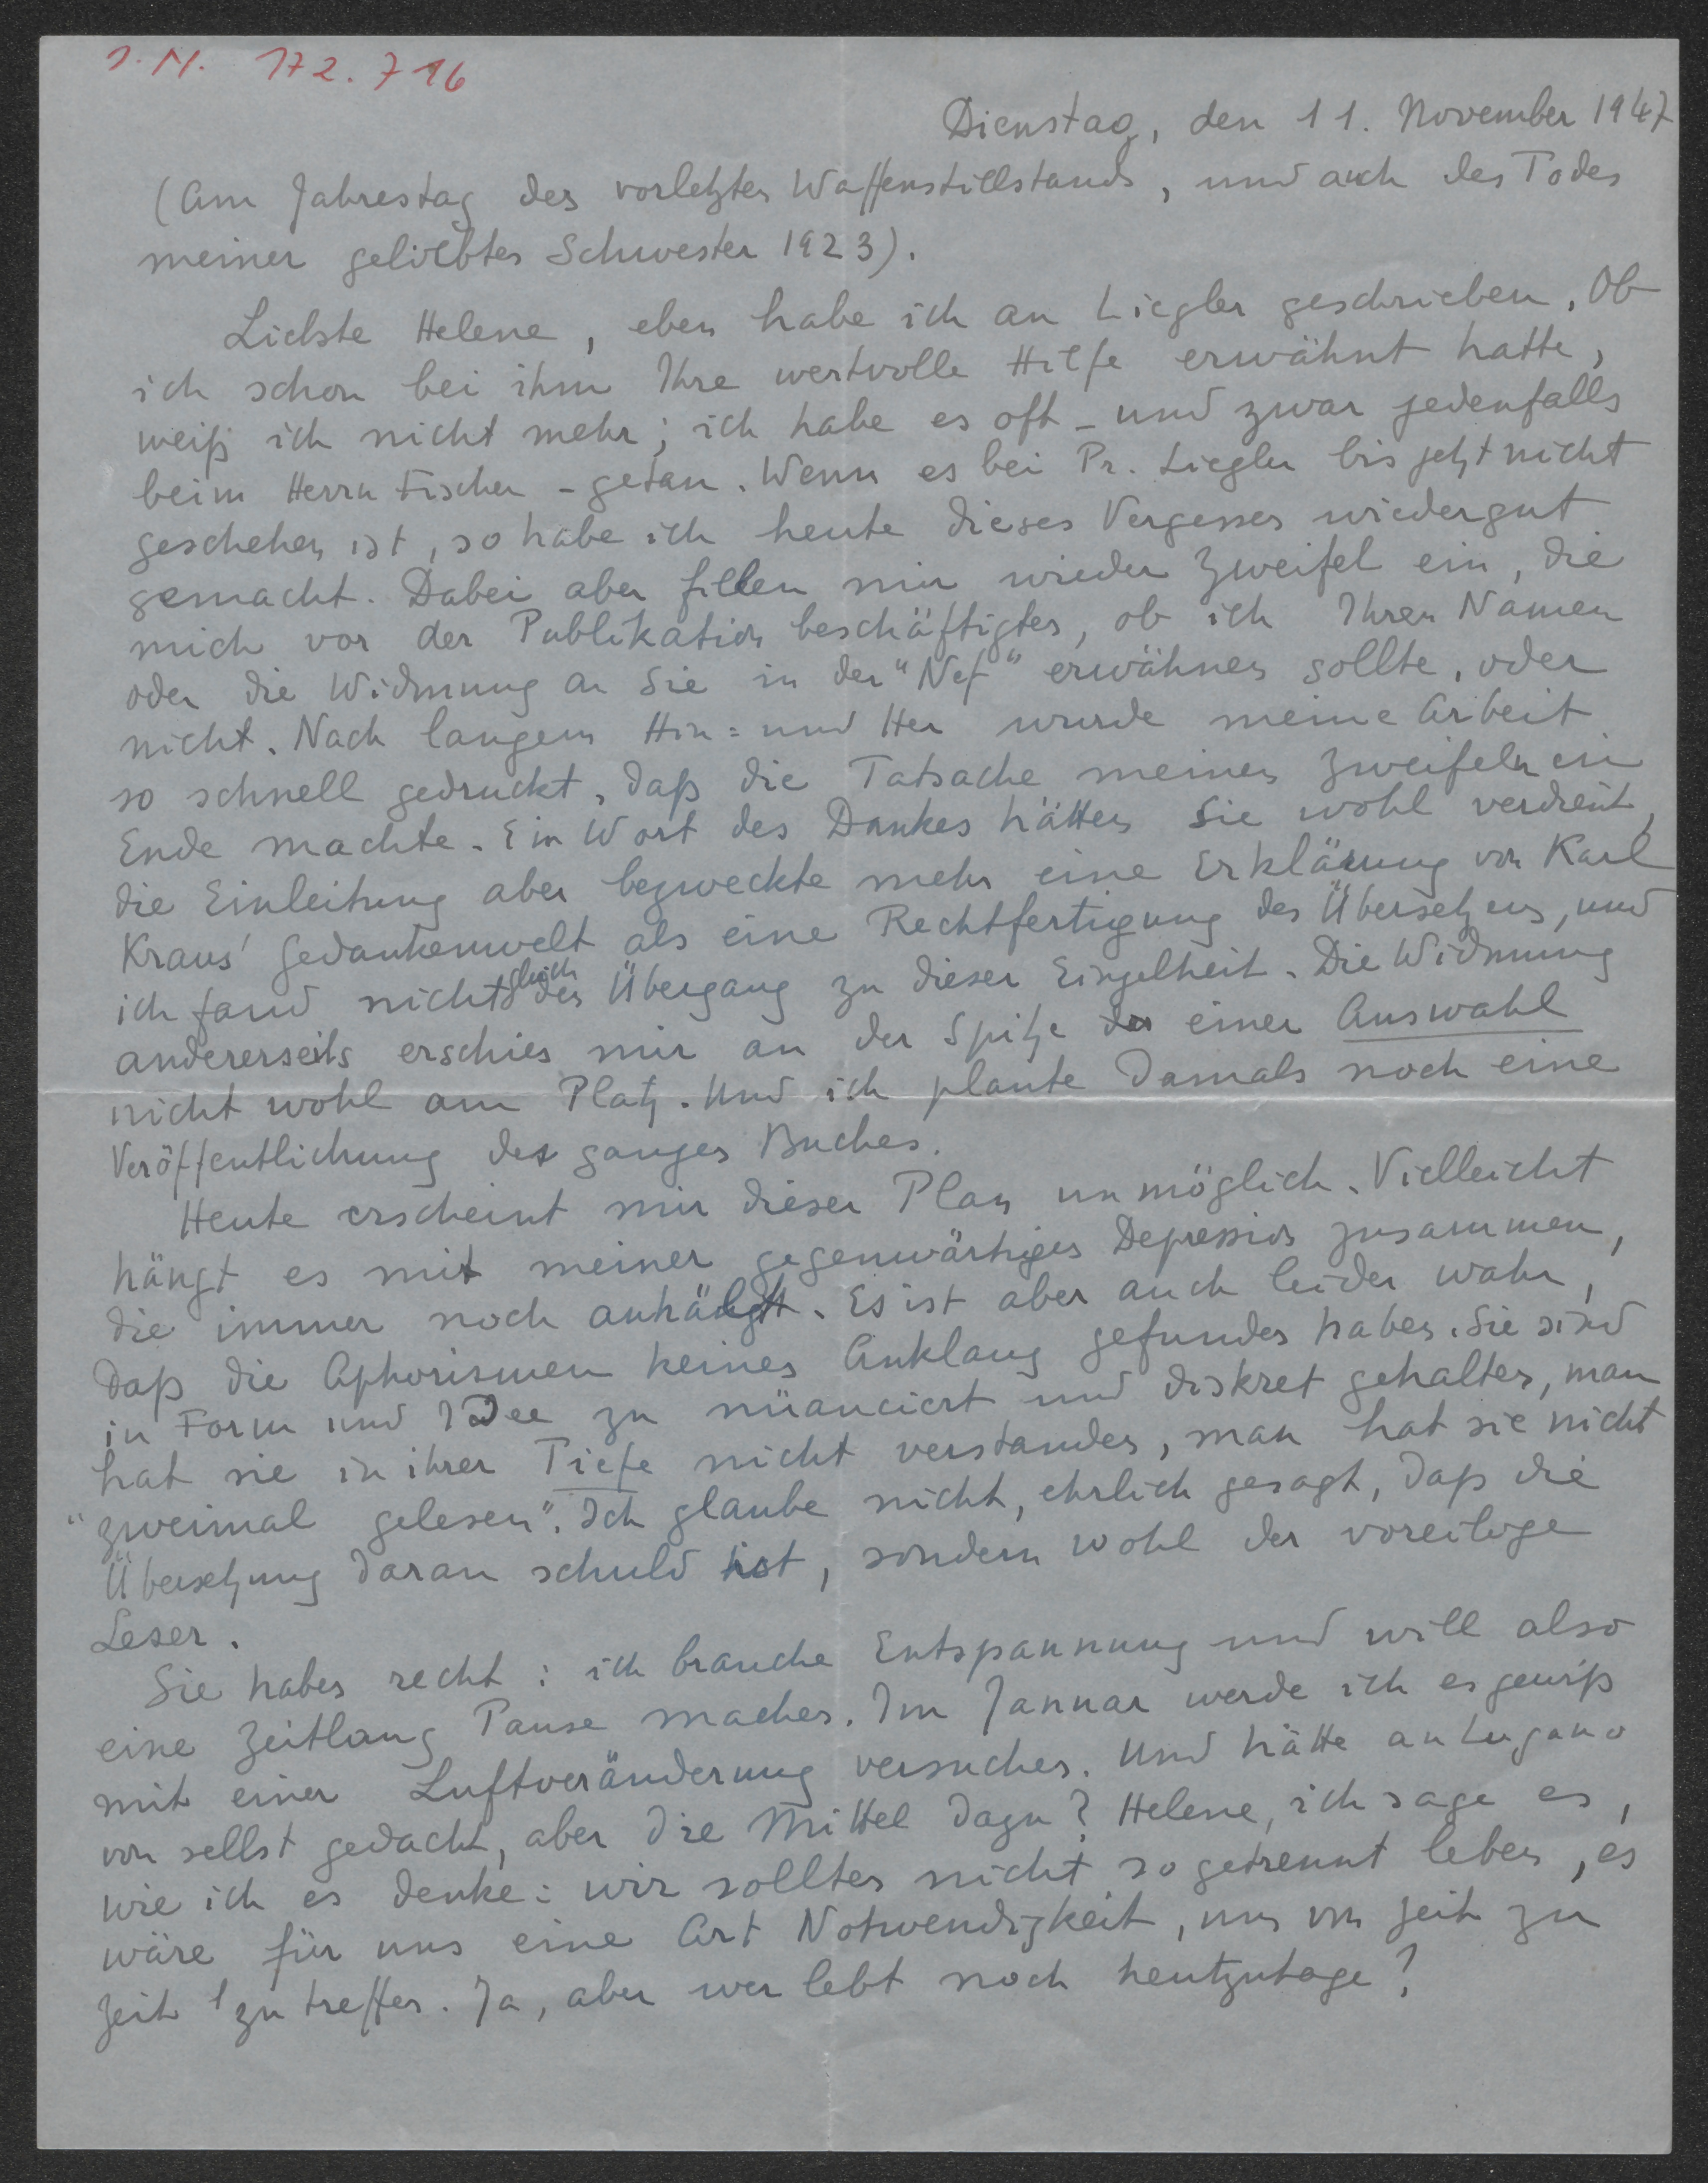 I. N. 172.716
Dienstag, den 11. November 1947
(Am Jahrestag des vorletzten Waffenstillstands, und auch des Todes
meiner geliebten Schwester 1923).
Liebste Helene, eben habe ich an Liegler geschrieben. Ob
ich schon bei ihm Ihre wertvolle Hilfe erwähnt hatte,
weiß ich nicht mehr; ich habe es oft - und zwar jedenfalls
beim Herrn Fischer - getan. Wenn es bei Pr. Liegler bis jetzt nicht
geschehen ist, so habe ich heute dieses Vergessen wiedergut
gemacht. Dabei aber fillen mir wieder Zweifel ein, die
mich vor der Publikation beschäftigten, ob ich Ihren Namen
oder die Widmung an Sie in der "Nef" erwähnen sollte, oder
nicht. Nach langem Hin= und Her wurde meine Arbeit
so schnell gedruckt, daß die Tatsache meinen Zweifeln ein
Ende machte. Ein Wort des Dankes hätten Sie wohl verdient,
die Einleitung aber bezweckte mehr eine Erklärung von Karl
Kraus' Gedankenwelt als eine Rechtfertigung des Übersetzens, und
ich fand nicht gleich den Übergang zu dieser Einzelheit. Die Widmung
andererseits erschien mir an der Spitze einer Auswahl
nicht wohl am Platz. Und ich plante damals noch eine
Veröffentlichung des ganzen Buches.
Heute erscheint mir dieser Plan unmöglich. Vielleicht
hängt es mit meiner gegenwärtigen Depression zusammen,
die immer noch anhält. Es ist aber auch leider wahr,
daß die Aphorismen keinen Anklang gefunden haben. Sie sind
in Form und Idee zu nüanciert und diskret gehalten, man
hat sie in ihrer Tiefe nicht verstanden, man hat sie nicht
"zweimal gelesen". Ich glaube nicht, ehrlich gesagt, daß die
Übersetzung daran schuld ist, sondern wohl der voreilige
Leser.
Sie haben recht: ich brauche Entspannung und will also
eine Zeitlang Pause machen. Im Januar werde ich es gewiß
mit einer Luftveränderung versuchen. Und hätte an Lugano
von selbst gedacht, aber die Mittel dazu? Helene, ich sage es,
wie ich es denke: wir sollten nicht so getrennt leben, es
wäre für uns eine Art Notwendigkeit, uns von Zeit zu
Zeit zu treffen. Ja, aber wer lebt noch heutzutage?